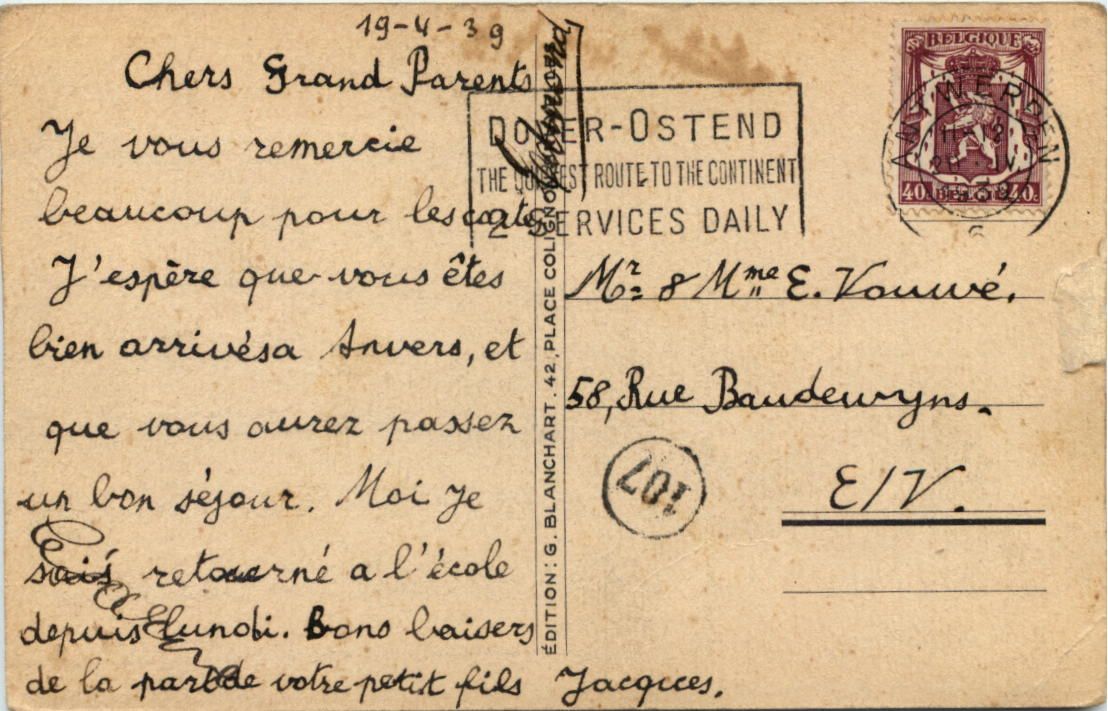 19-4-39
Chers Grand Parents
Je vous remercie
beaucoup pour les carte
J'espère que vous êtes
bien arrivésa Anvers, et
que vous aurez passez
un bon séjour. Moi je
suis retourné a l'école
depuis lundi. Bons baisers
de la part de votre petit fils Jacques.
DOVER-OSTEND
THE QUICKEST ROUTE TO THE CONTINENT
2 SERVICES DAILY
BELGIQUE
40c 40c
ANTWERPEN
ÉDITION: G. BLANCHART. 42, PLACE COLIGNON
Mr & Mme E. Vouwé.
58, Rue Baudewyns.
E/V.
107